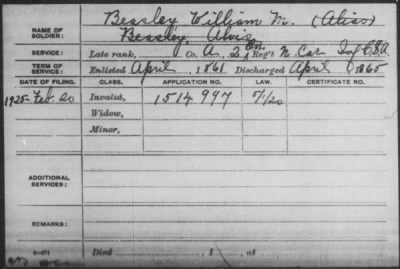 Beasley William M. (Alias)
NAME OF SOLDIER: Beasley, Alvis
SERVICE: Late rank, Co. A, 2 Bn Reg't N. Car Inf C.S.A
TERM OF SERVICE: Enlisted April, 1861 Discharged April, 1865
DATE OF FILING. CLASS. APPLICATION NO. LAW. CERTIFICATE NO.
1925-Feb. 20 Invalid, 1514997 5/1/20
Widow,
Minor,
ADDITIONAL SERVICES:
REMARKS:
3-471 Died , 1 , at